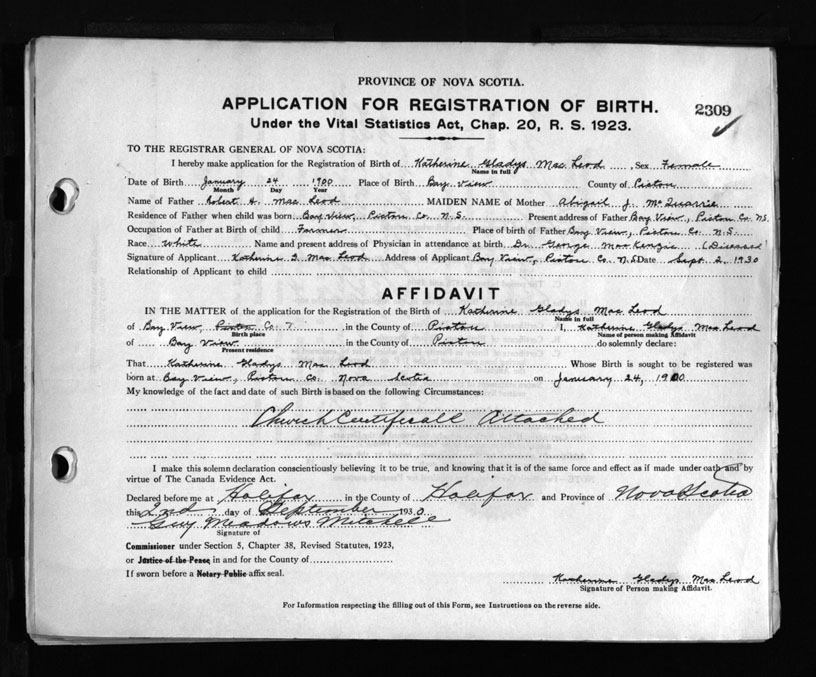 PROVINCE OF NOVA SCOTIA.
APPLICATION FOR REGISTRATION OF BIRTH.
2309
Under the Vital Statistics Act, Chap. 20, R. S. 1923.
TO THE REGISTRAR GENERAL OF NOVA SCOTIA:
I hereby make application for the Registration of Birth of Katherine Gladys Mac Leod, Sex Female
Name in full
Date of Birth January 24 1900 Place of Birth Bay View County of Pictou
Month Day Year
Name of Father Robert H. Mac Leod MAIDEN NAME of Mother Abigail J. McQuarrie
Residence of Father when child was born Bay View, Pictou Co. N.S. Present address of Father Bay View, Pictou Co. N.S.
Occupation of Father at Birth of child Farmer Place of birth of Father Bay View, Pictou Co. N.S.
Race White Name and present address of Physician in attendance at birth Dr. George MacKenzie (Diseased)
Signature of Applicant Katherine G. MacLeod Address of Applicant Bay View, Pictou Co. N.S. Date Sept. 2, 1930
Relationship of Applicant to child
AFFIDAVIT
IN THE MATTER of the application for the Registration of the Birth of Katherine Gladys Mac Leod
Name in full
of Bay View, Pictou Co. in the County of Pictou I, Katherine Gladys Mac Leod
Birth place Name of person making Affidavit
of Bay View in the County of Pictou do solemnly declare:
Present residence
That Katherine Gladys Mac Leod Whose Birth is sought to be registered was
born at Bay View, Pictou Co. Nova Scotia on January 24, 1900
My knowledge of the fact and date of such Birth is based on the following Circumstances:
Church Certificate Attached
I make this solemn declaration conscientiously believing it to be true, and knowing that it is of the same force and effect as if made under oath and by
virtue of The Canada Evidence Act.
Declared before me at Halifax in the County of Halifax and Province of Nova Scotia
this 2nd day of September 1930
Guy Meadows Mitchell
Signature of
Commissioner under Section 5, Chapter 38, Revised Statutes, 1923,
or Justice of the Peace in and for the County of
If sworn before a Notary Public affix seal.
Katherine Gladys Mac Leod
Signature of Person making Affidavit.
For Information respecting the filling out of this Form, see Instructions on the reverse side.